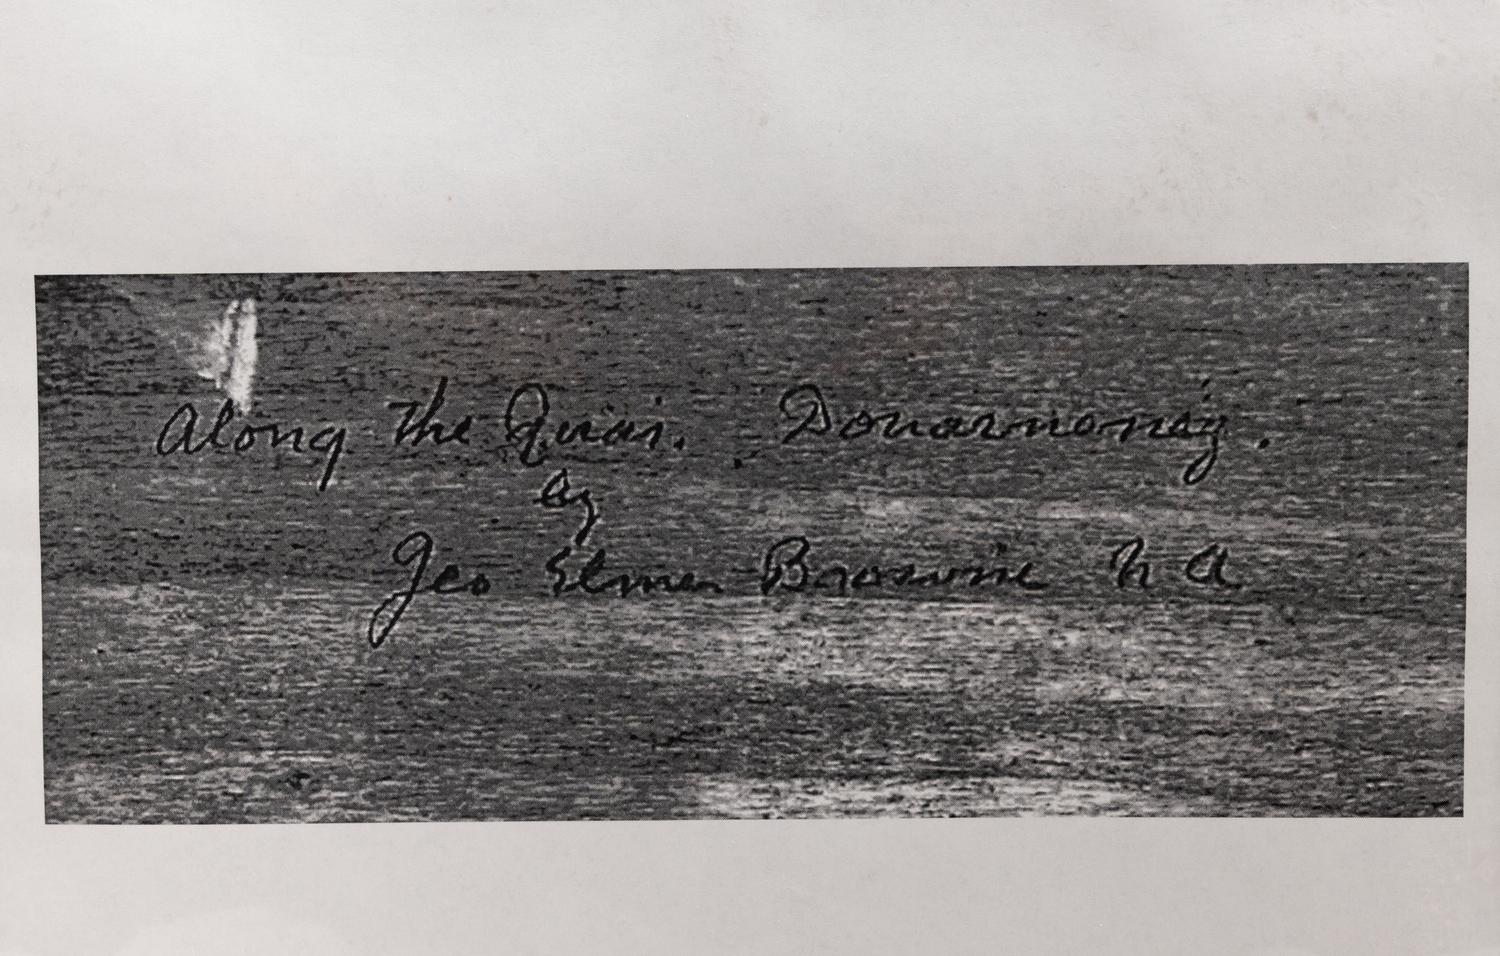 Along the Quai. Douarnonéz.
by
Geo Elmer Browne N A